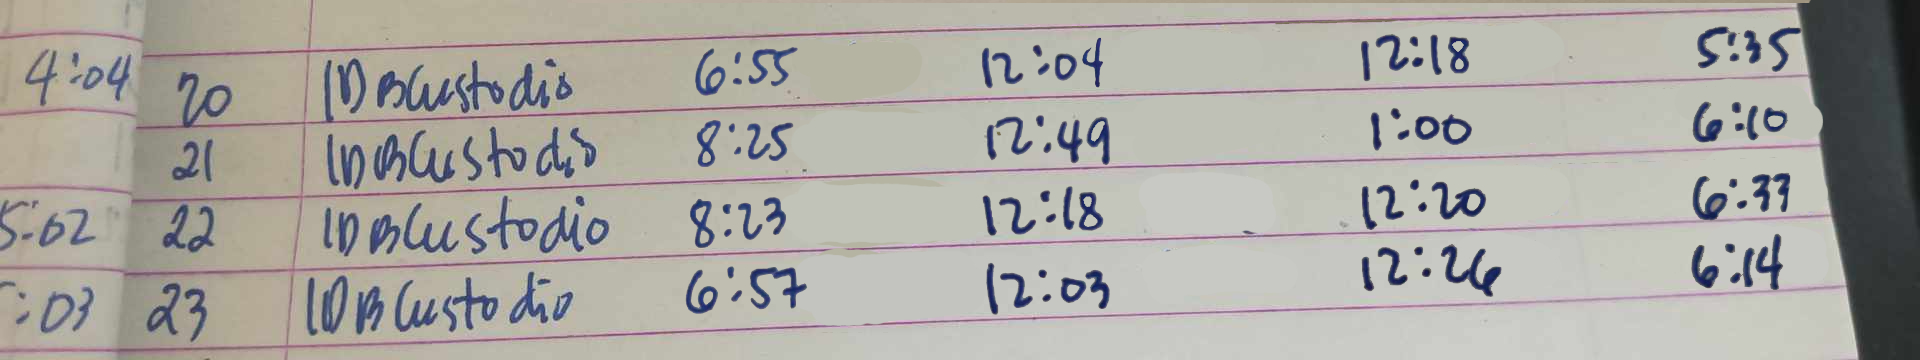 4:04 20 IDBCustodio 6:55 12:04 12:18 5:35
21 IDBCustodio 8:25 12:49 1:00 6:10
5:02 22 IDBCustodio 8:23 12:18 12:20 6:33
:03 23 IDBCustodio 6:57 12:03 12:26 6:14